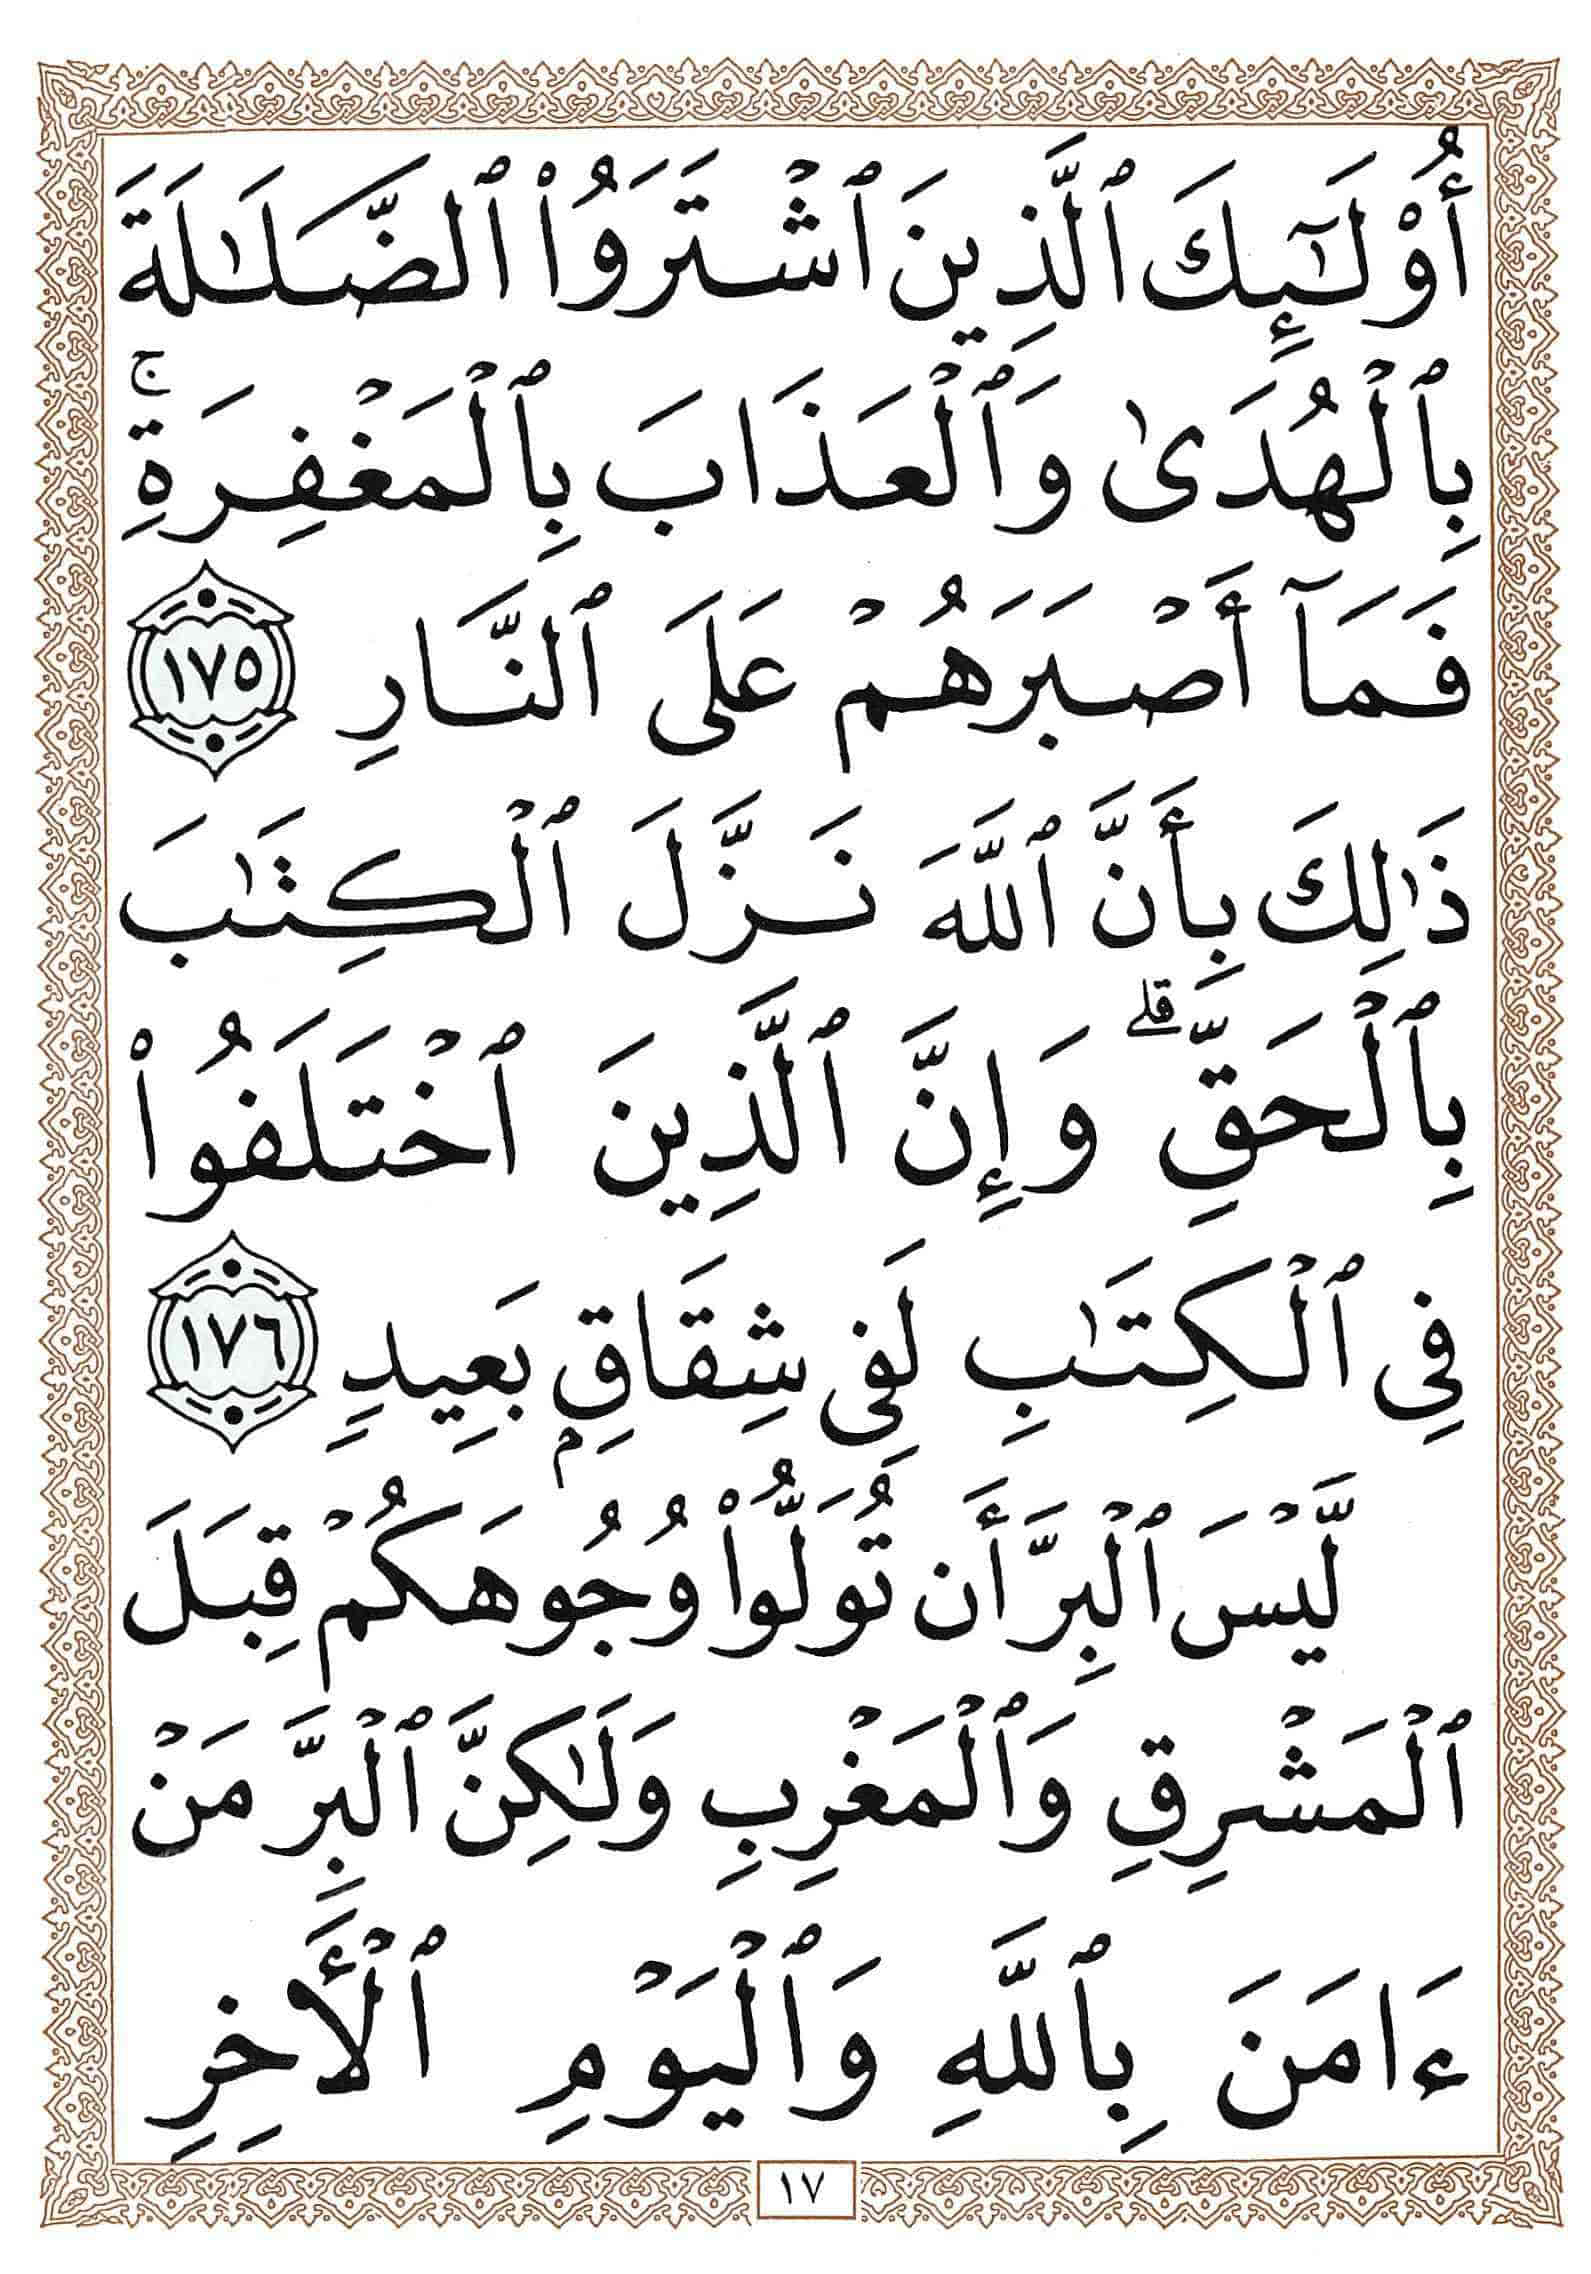 أُوْلَٰٓئِكَ ٱلَّذِينَ ٱشْتَرَوُاْ ٱلضَّلَٰلَةَ
بِٱلْهُدَىٰ وَٱلْعَذَابَ بِٱلْمَغْفِرَةِۚ
فَمَآ أَصْبَرَهُمْ عَلَى ٱلنَّارِ ١٧٥
ذَٰلِكَ بِأَنَّ ٱللَّهَ نَزَّلَ ٱلْكِتَٰبَ
بِٱلْحَقِّۗ وَإِنَّ ٱلَّذِينَ ٱخْتَلَفُواْ
فِى ٱلْكِتَٰبِ لَفِى شِقَاقِۭ بَعِيدٍ ١٧٦
لَّيْسَ ٱلْبِرَّ أَن تُوَلُّواْ وُجُوهَكُمْ قِبَلَ
ٱلْمَشْرِقِ وَٱلْمَغْرِبِ وَلَٰكِنَّ ٱلْبِرَّ مَنْ
ءَامَنَ بِٱللَّهِ وَٱلْيَوْمِ ٱلْأَخِرِ
١٧